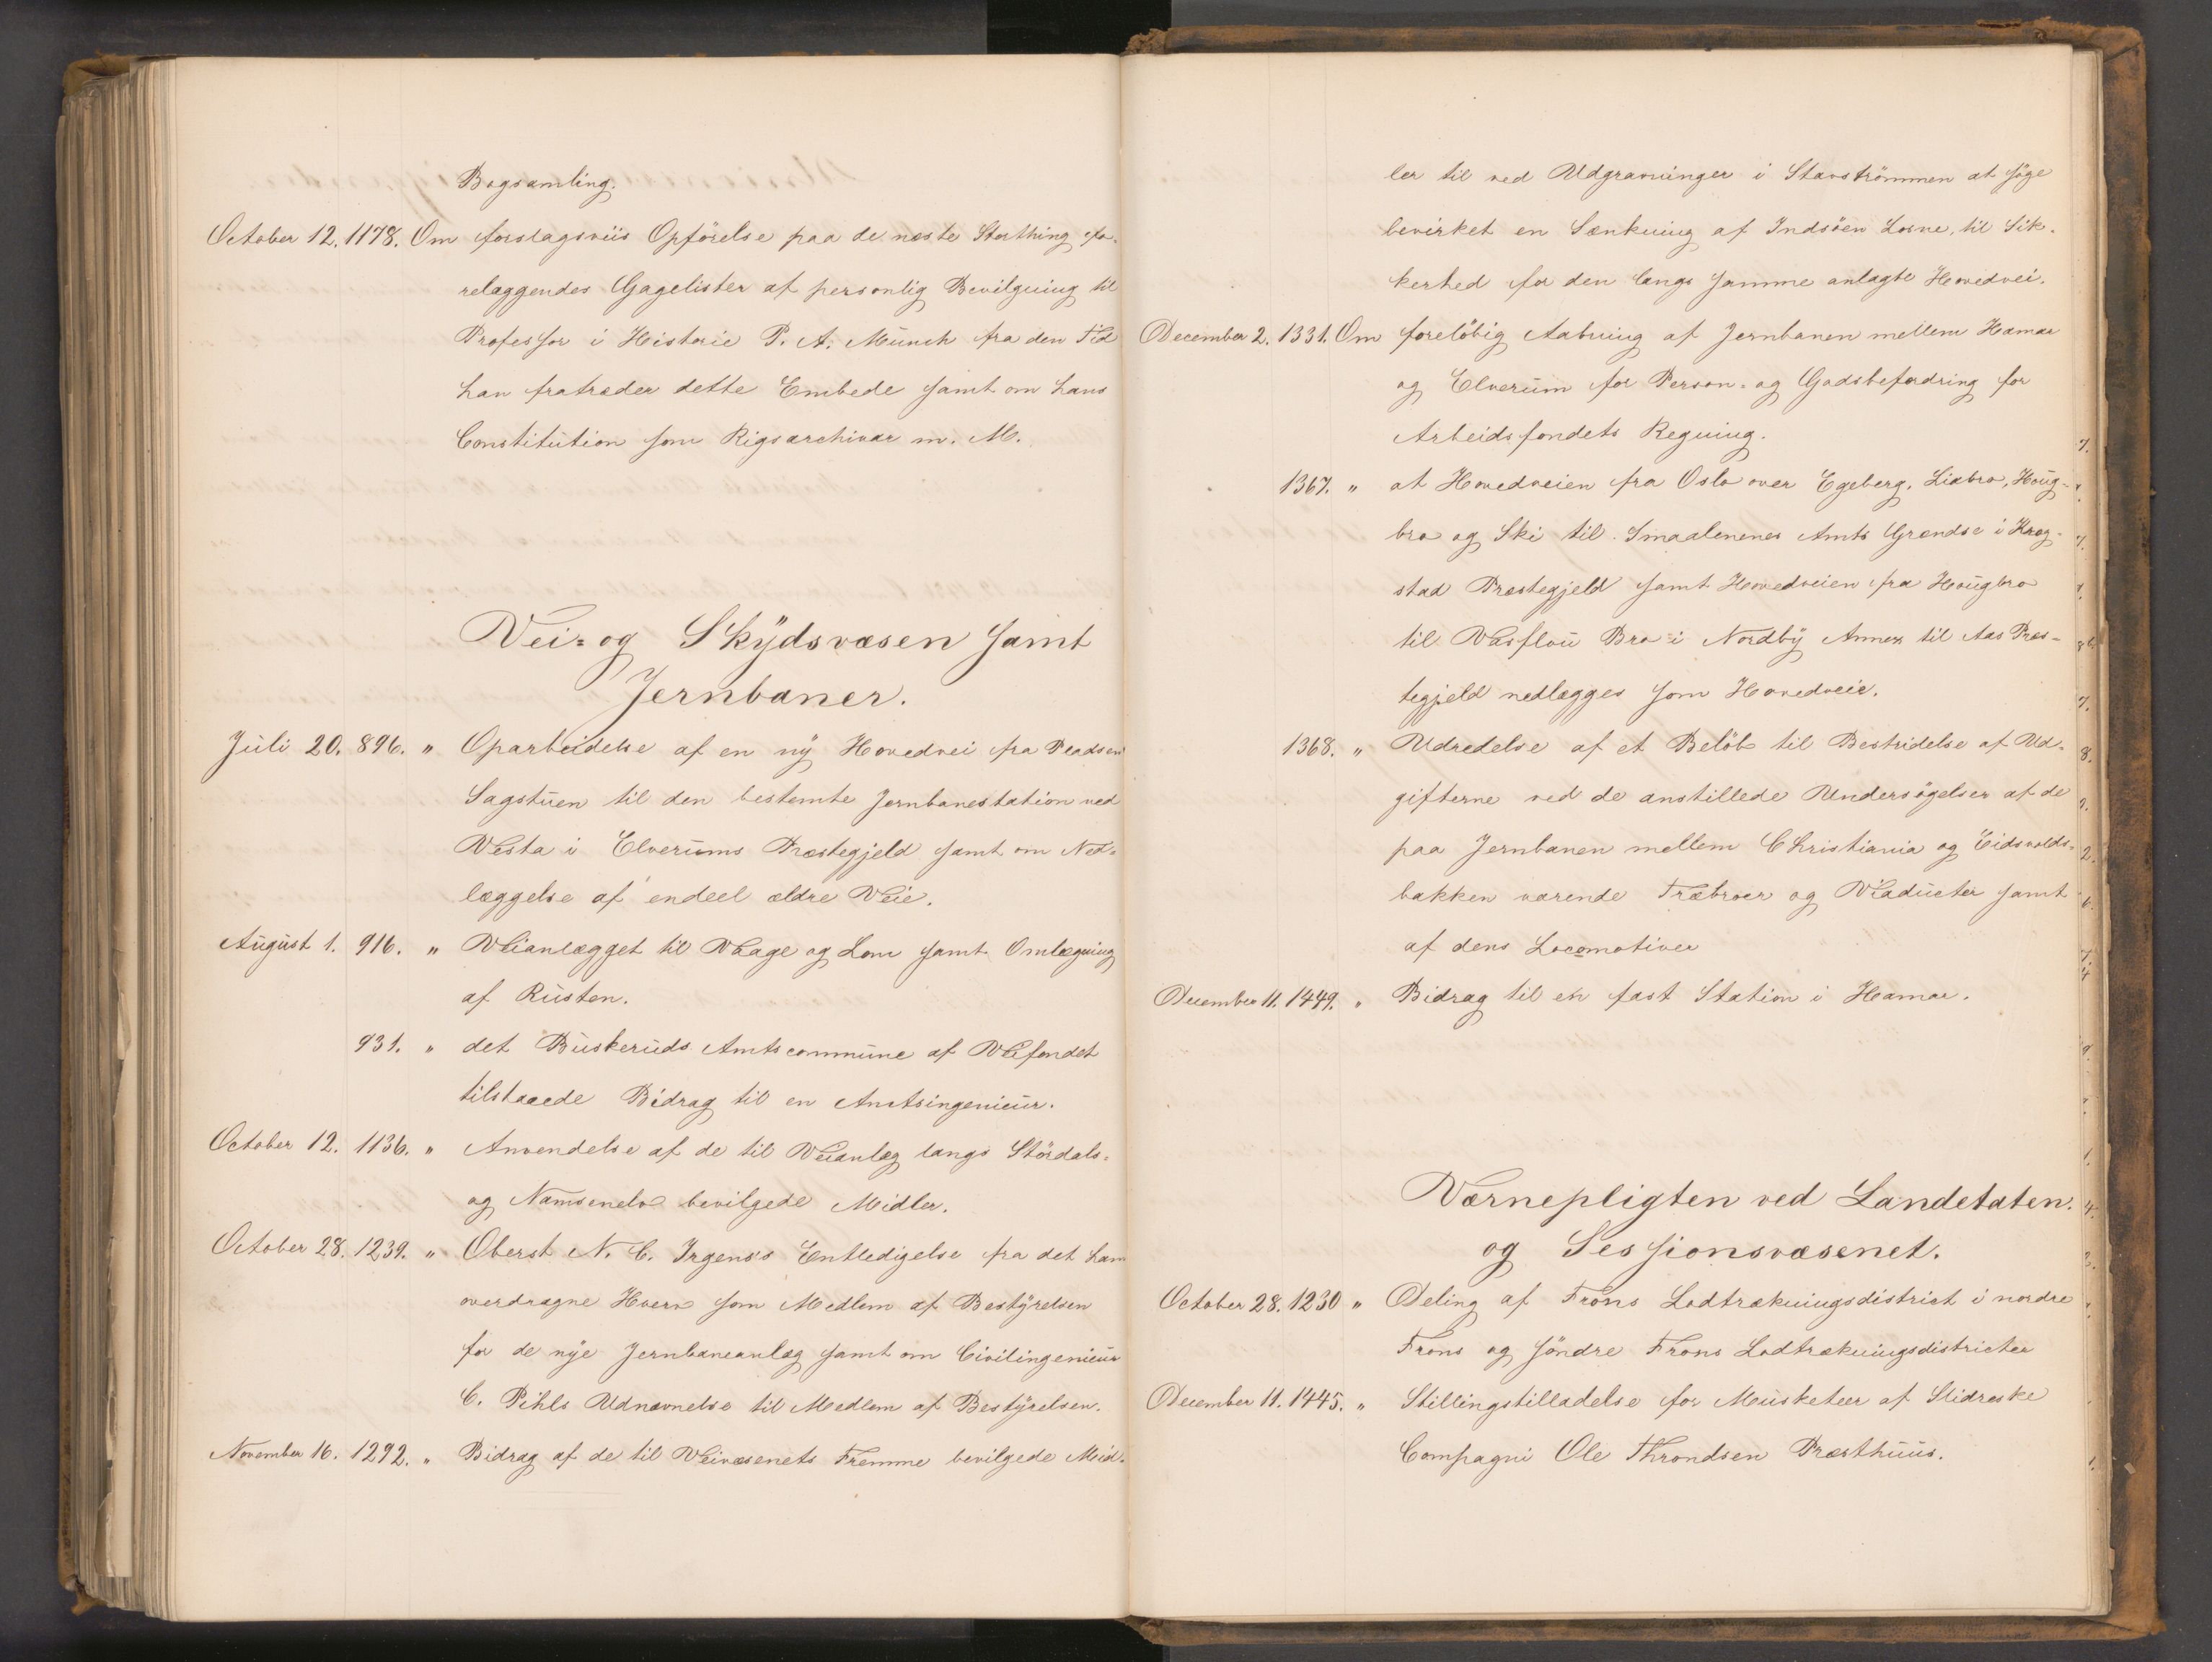 Bogsamling.
October 12. 1178. Om forslagsviis Opförelse paa de næste Storthing fo-
relæggendes Gagelister af personlig Bevilgning til
Professor i Historie P. A. Münch fra den Tid
han fratræder dette Embede samt om hans
Constitution som Rigsarchivar m. M.
Vei- og Skydsvæsen samt
Jernbaner.
Juli 20. 896. " Oparbeidelse af en ny Hovedvei fra Pladsen
Sagstuen til den bestemte Jernbanestation ved
Vesta i Elverums Præstegjeld samt om Ned-
læggelse af endeel ældre Veie.
August 1. 916. " Veianlægget til Vaage og Lom samt Omlægning
af Rusten.
931. " det Buskeruds Amtscommune af Veifondet
tilstaaede Bidrag til en Amtsingenieur.
October 12. 1136. " Anvendelse af de til Veianlæg langs Stördals-
og Namsenelv bevilgede Midler.
October 28. 1239. " Oberst N. C. Irgens's Entledigelse fra det ham
overdragne Hverv som Medlem af Bestyrelsen
for de nye Jernbaneanlæg samt om Civilingenieur
C. Pihls Udnævnelse til Medlem af Bestyrelsen.
November 16. 1292. " Bidrag af de til Veivæsenets Fremme bevilgede Mid-
ler til ved Udgravninger i Stavströmmen at söge
bevirket en Sænkning af Indsöen Losne, til Sik-
kerhed for den langs samme anlagte Hovedvei.
December 2. 1331. Om forelöbig Aabning af Jernbanen mellem Hamar
og Elverum for Person- og Godsbefordring for
Arbeidsfondets Regning.
1367. " at Hovedveien fra Oslo over Egeberg, Liabro, Houg-
bro og Ski til Smaalenenes Amts Grændse i Kraag-
stad Præstegjeld samt Hovedveien fra Hougbro
til Vasflou Bro i Nordby Annex til Aas Præs-
tegjeld nedlægges som Hovedveie.
1368. " Udredelse af et Belöb til Bestridelse af Ud-
gifterne ved de anstillede Undersögelser af de
paa Jernbanen mellem Christiania og Eidsvolds-
bakken værende Træbroer og Viaducter samt
af dens Locomotiver
December 11. 1449. " Bidrag til en fast Station i Hamar.
Værnepligten ved Landetaten.
og Sessionsvæsenet.
October 28. 1230 " Deling af Frons Lodtrækningsdistrict i nordre
Frons og söndre Frons Lodtrækningsdistricter
December 11. 1445. " Stillingstilladelse for Musketeer af Slidreske
Compagni Ole Throndsen Præsthuus.